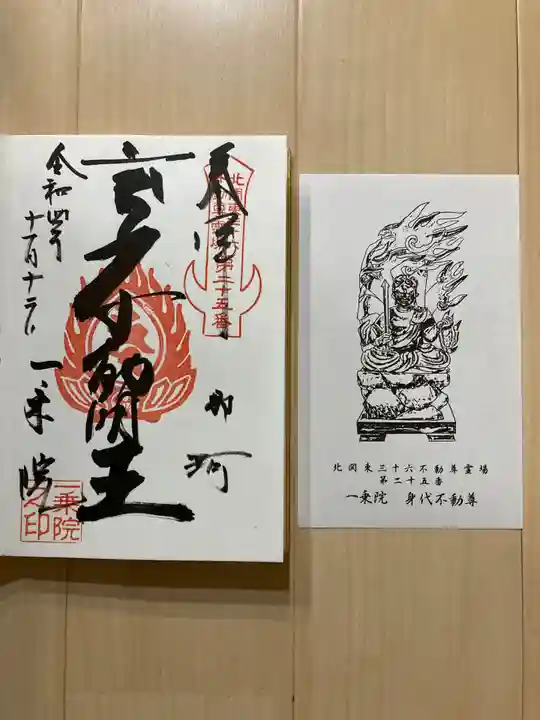 奉拝
北関東三十六不動尊霊場第二十五番
那珂
令和四年
十一月十二日
一乗院
一乗院
之印
北関東三十六不動尊霊場
第二十五番
一乗院 身代不動尊